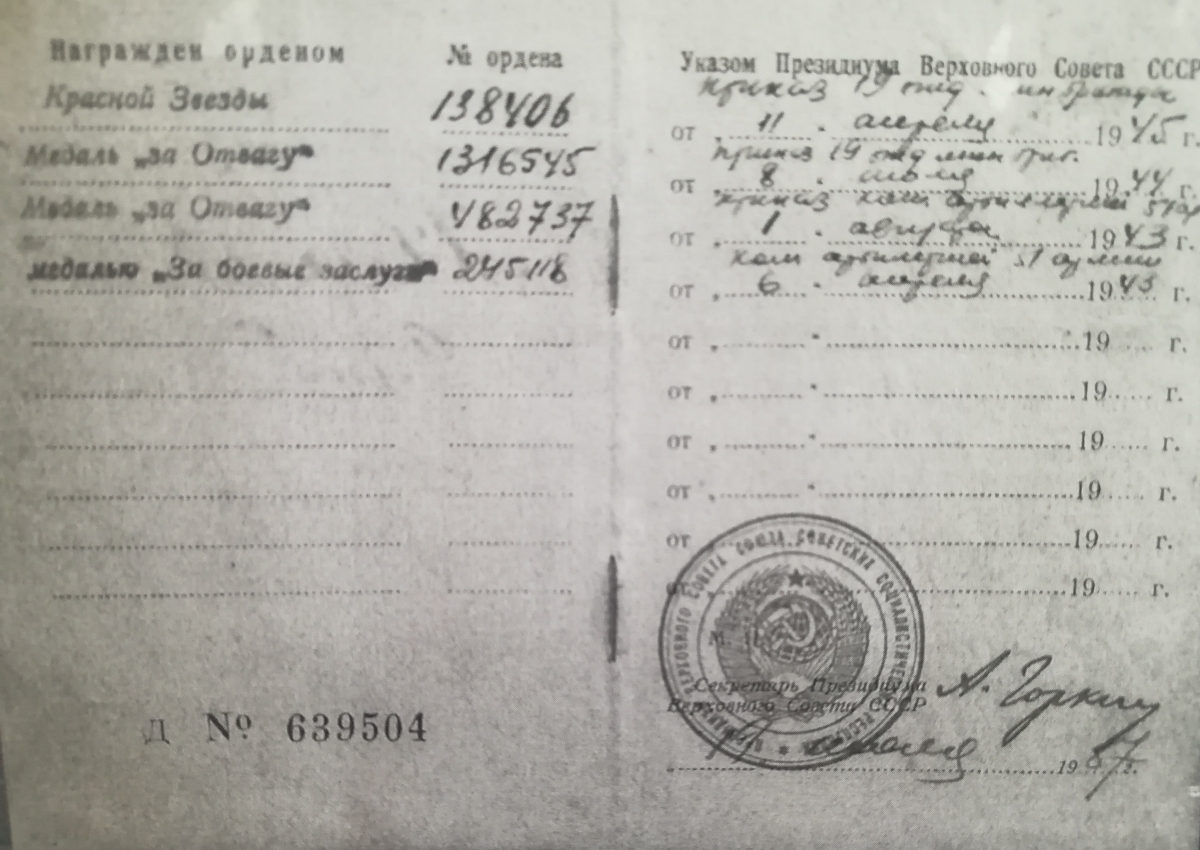 Награжден орденом
№ ордена
Красной Звезды
138406
Медаль „за Отвагу"
1316545
Медаль „за Отвагу"
482737
медалью „За боевые заслуги"
245118
Д № 639504
Указом Президиума Верховного Совета СССР
приказ 19 отд.
от „ 11 " апреля 1945 г.
приказ 19 отд мин бриг.
от „ 8 " июля 1944 г.
приказ ком артиллерией 51 ар
от „ 1 " августа 1943 г.
ком артиллерией 51 армии
от „ 6 " апреля 1943 г.
от „ " 19 г.
от „ " 19 г.
от „ " 19 г.
от „ " 19 г.
от 19 г.
от 19 г.
М. П.
Секретарь Президиума
Верховного Совета СССР
А. Горкин
19 г.
ПРЕЗИДИУМ ВЕРХОВНОГО СОВЕТА СОЮЗА СОВЕТСКИХ СОЦИАЛИСТИЧЕСКИХ РЕСПУБЛИК